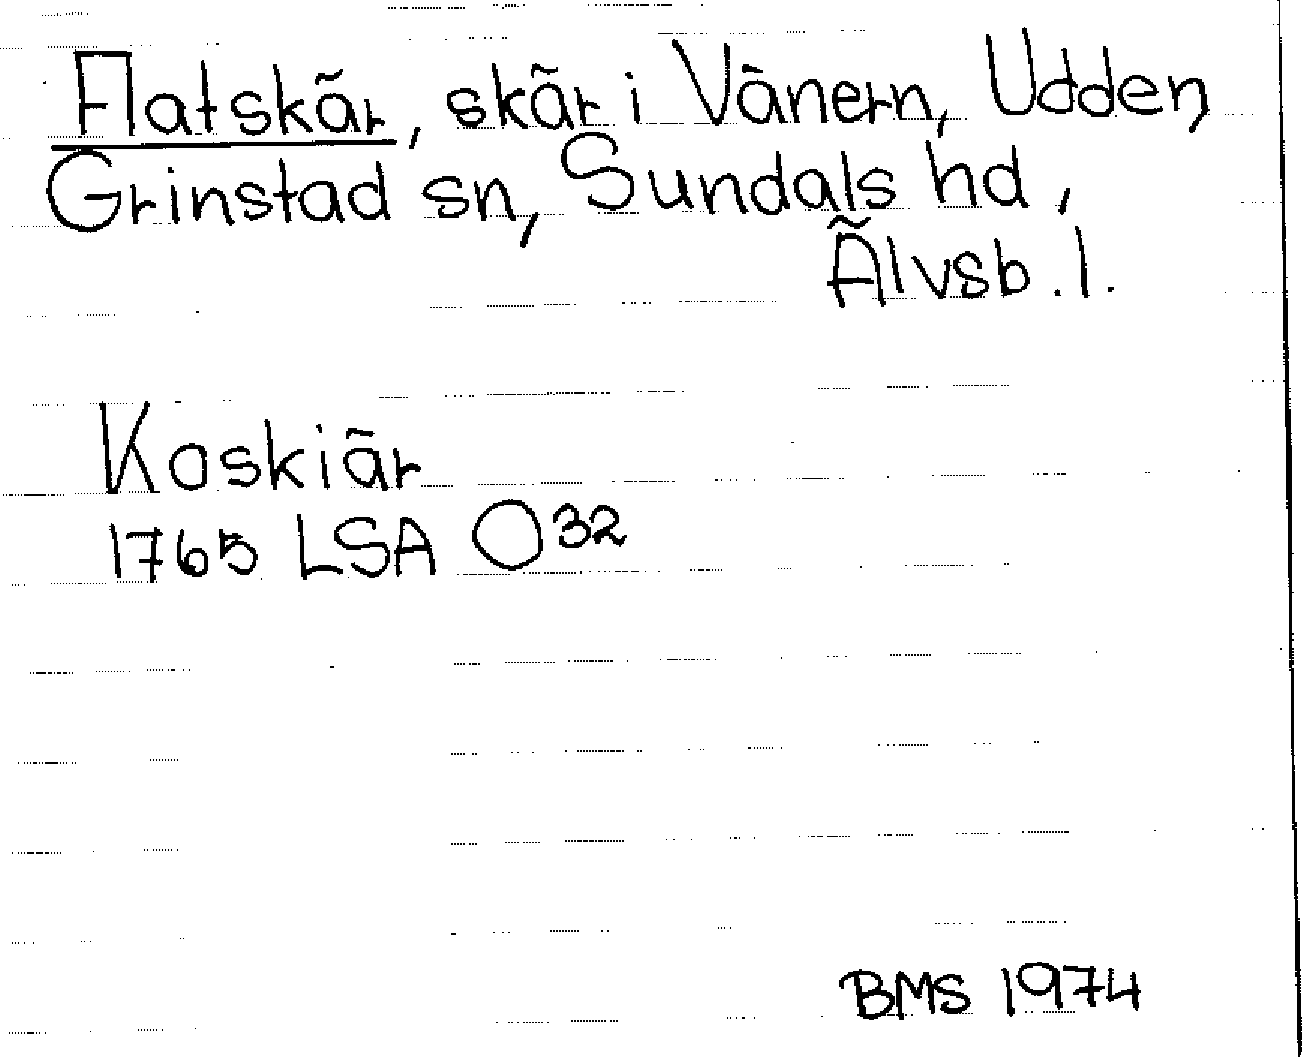 Flatskär, skär i Vänern, Udden,
Grinstad sn, Sundals hd,
Älvsb. l.
Koskiär
1765 LSA O32
BMS 1974